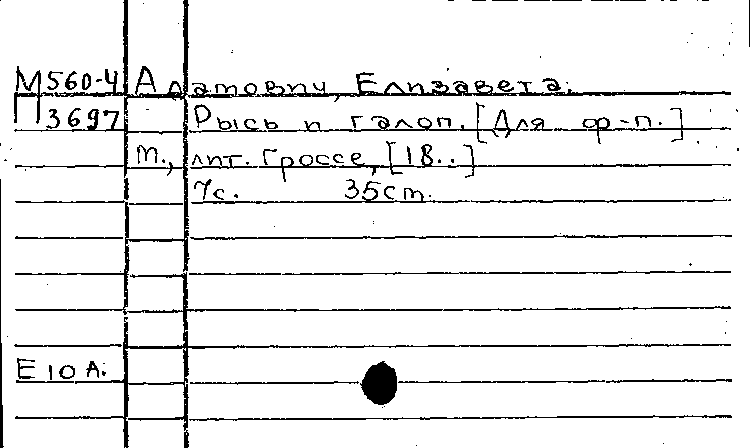 М560-4 Адамович, Елизавета.
П 3697 Рысь и галоп. [Для ф-п.]
М., лит. Гроссе, [18..]
7с. 35см.
Е10А.